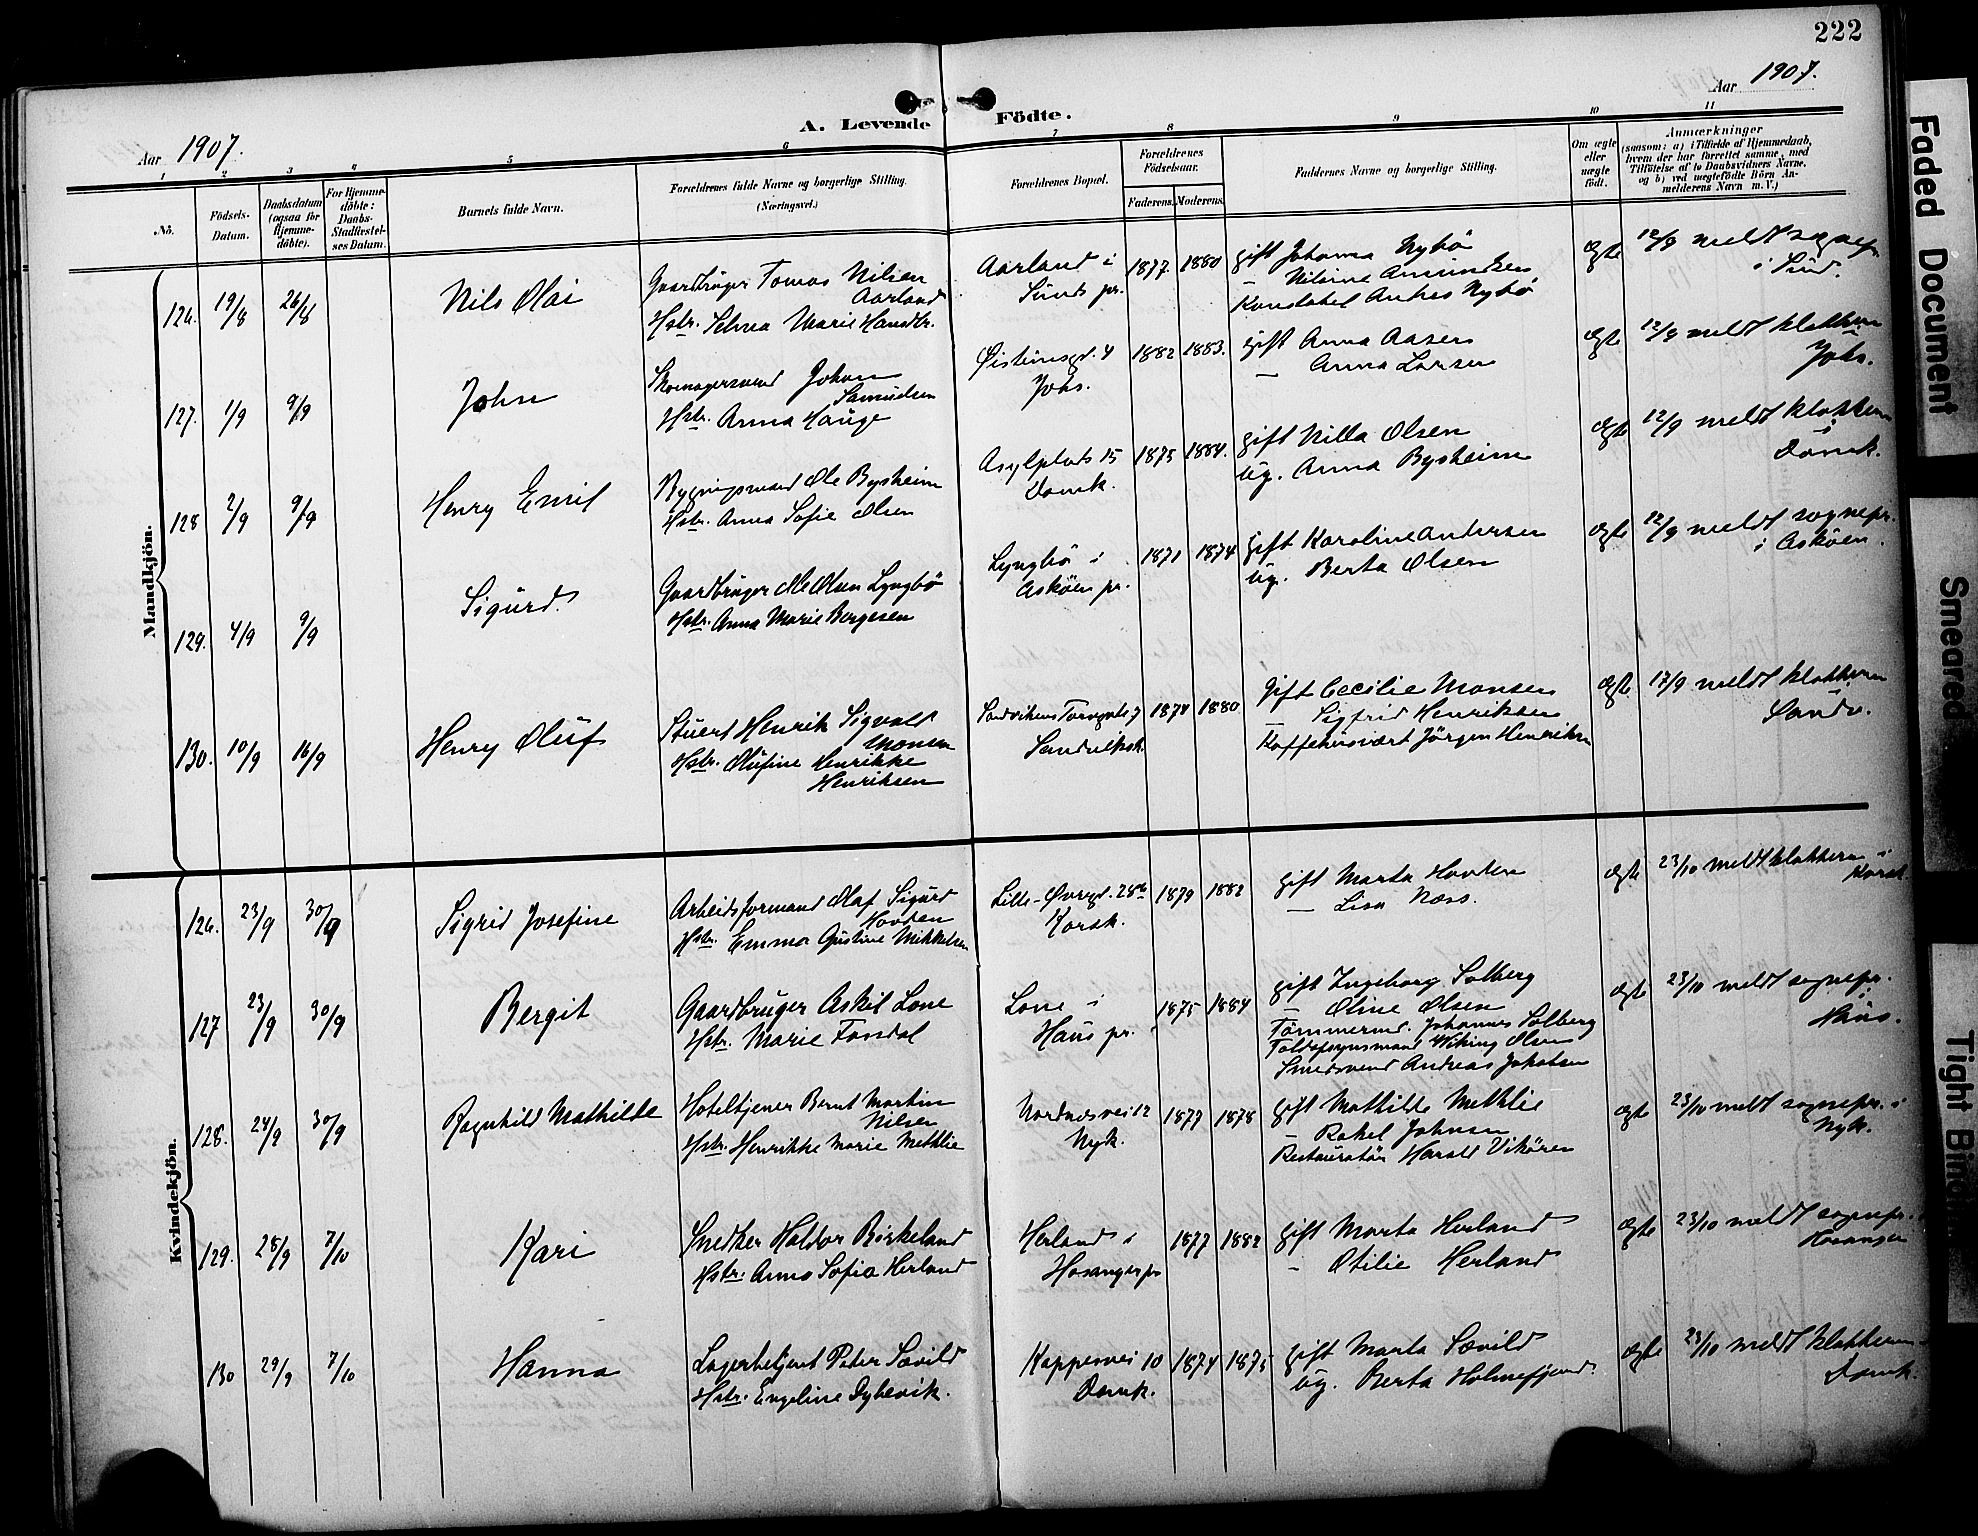 222
Aar 1907.
Aar 1907.
A. Levende Födte.
1
2
3
4
5
6
7
8
9
10
11
Nô.
Födsels-Datum.
Daabsdatum (ogsaa för Hjemme-döbte).
For Hjemme-döbte: Daabs-Stadfæstel-ses Datum.
Barnets fulde Navn.
Forældrenes fulde Navne og borgerlige Stilling. (Næringsvei.)
Forældrenes Bopæl.
Forældrenes Födselsaar.
Faderens.
Moderens.
Faddernes Navne og borgerlige Stilling.
Om ægte eller uægte födt.
Anmærkninger
(saasom: a) i Tilfælde af Hjemmedaab,
hvem der har forrettet samme, med
Tilföielse af to Daabsvidners Navne.
og b) ved uægtefödte Börn An-
melderens Navn m. V.)
Mandkjön.
126. 19/8 26/8 Nils Olai
Gaardbruger Tomas Nilsen
Aarland
Hstr. Selma Marie Handtv.
Aarland i
Sunds pr.
1877 1880
gift Johanna Nybö
— Nilsine Amundsen
Konstabel Andreas Nybö
ægte
12/9 meldt sognepr.
i Sund.
127. 1/9 9/9 John
Skomagersvend Johan
Samuelsen
Hstr. Anna Hauge
Øistensgd. 4
Johs.
1882 1883.
gift Anna Aasen
— Anna Larsen
ægte
12/9 meldt klokkeren
i
Johs.
128 2/9 9/9 Henry Emil
Bygningsmand Ole Bysheim
Hstr. Anna Sofie Olsen
Asylplads 15
Domk.
1875 1884.
gift Nilla Olsen
ug. Anna Bysheim
ægte
12/9 meldt klokkeren
i
Domk.
129. 4/9 9/9 Sigurd.
Gaardbruger Ole Olsen Lyngbö
Hstr. Anna Marie Børgesen
Lyngbö i
Asköen pr.
1871 1874
gift Karoline Andersen
ug. Berta Olsen
ægte
12/9 meldt sognepr.
i Asköen.
130. 10/9 16/9 Henry Oluf
Stuert Henrik Sigvald
Monsen
Hstr. Olufine Henrikke
Henriksen
Sandvikens Torvgade 7
Sandviksk.
1874 1880
gift Cecilie Monsen
— Sigfrid Henriksen
Kaffehusvært Jörgen Henriksen
ægte
17/9 meldt klokkeren
i
Sandv.
Kvindekjön.
126. 23/9 30/9 Sigrid Josefine
Arbeidsformand Olaf Sigurd
Hovden
Hstr. Emma Gustine Mikkelsen
Lille-Øvregd. 28b
Korsk.
1879 1882
gift Marta Hovden
— Lisa Næss.
ægte
23/10 meldt klokkeren i
Korsk.
127 23/9 30/9 Bergit
Gaardbruger Askil Lone
Hstr. Marie Fosdal
Lone i
Haus pr.
1875 1884
gift Ingeborg Solberg
— Oline Olsen
Tömmermd. Johannes Solberg
Toldopsynsmand Viking Olsen
Smedsvend Andreas Jakobsen
ægte
23/10 meldt sognepr.
i
Haus.
128. 24/9 30/9 Ragnhild Mathilde
Hoteltjener Bernt Martin
Nilsen
Hstr. Henrikke Marie Methlie
Nordnæsvei 12
Nyk.
1877 1878
gift Mathilde Methlie
— Rakel Johnsen
Restauratör Harald Vikören
ægte
23/10 meldt sognepr. i
Nyk.
129. 28/9 7/10 Kari
Snedker Haldor Birkeland
Hstr. Anna Sofia Herland
Herland i
Hosanger pr
1877 1882
gift Marta Herland
— Otilie Herland
ægte
23/10 meldt sognepr. i
Hosanger
130 29/9 7/10 Hanna
Lagerbetjent Peter Sævild
Hstr. Engeline Dybevik.
Kappesvei 10
Domk.
1874 1875
gift Marta Sævild
ug. Berta Holmefjord.
ægte
23/10 meldt klokkeren i
Domk.
Faded Document
Smeared
Tight Bindin